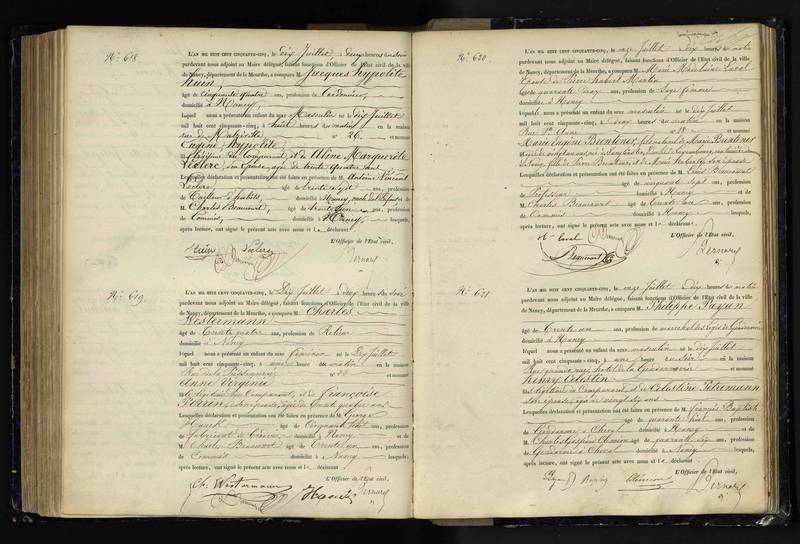 N.° 618
L'AN MIL HUIT CENT CINQUANTE-CINQ, le dix Juillet deux heures du soir
pardevant nous adjoint au Maire délégué, faisant fonctions d'Officier de l'État civil de la ville
de Nancy, département de la Meurthe, a comparu M. Jacques hypolite
âgé de cinquante quatre ans, profession de Cordonnier,
domicilié à Nancy,
lequel nous a présenté un enfant du sexe Masculin né le dix Juillet
mil huit cent cinquante-cinq, à huit heures du matin en la maison
rue de Malzéville n° 26. et nommé
Eugène hypolite
fils légitime du Comparant, et de Aline Marguerite
Leclerc, son épouse, âgée de trente quatre ans
Lesquelles déclaration et présentation ont été faites en présence de M. Antoine Vincent
Leclerc, âgé de trente sept ans, profession
de Tailleur d'habits, domicilié à Nancy, oncle de l'Enfant et de
M. Charles Beaucourt, âgé de trente un ans, profession
de Commis, domicilié à Nancy, lesquels,
après lecture, ont signé le présent acte avec nous et le déclarant
L'Officier de l'État civil,
Leclerc
N.° 619
L'AN MIL HUIT CENT CINQUANTE-CINQ, le Dix Juillet deux heures du soir
pardevant nous adjoint au Maire délégué, faisant fonctions d'Officier de l'État civil de la ville
de Nancy, département de la Meurthe, a comparu M. Charles
Westermann
âgé de trente quatre ans, profession de Relieur
domicilié à Nancy
lequel nous a présenté un enfant du sexe féminin né le Dix Juillet
mil huit cent cinquante-cinq, à une heure du matin en la maison
Rue de la Poissonnerie n° 22 et nommé
Anne Virginie
fille légitime du Comparant, et de Françoise
Perrin, son épouse, âgée de
Lesquelles déclaration et présentation ont été faites en présence de M. George
Hauck âgé de cinquante huit ans, profession
de fabricant de domicilié à Nancy et de
M. Charles Beaucourt âgé de trente un ans, profession
de Commis domicilié à Nancy lesquels,
après lecture, ont signé le présent acte avec nous et le déclarant
L'Officier de l'État civil,
Ch. Westermann Hauck
N.° 620
L'AN MIL HUIT CENT CINQUANTE-CINQ, le onze Juillet dix heures du matin
pardevant nous adjoint au Maire délégué, faisant fonctions d'Officier de l'État civil de la ville
de Nancy, département de la Meurthe, a comparu M. Marie Madeleine Laval
épouse de Pierre hubert Martin
âgée de quarante deux ans, profession de Sage femme
domiciliée à Nancy
laquelle nous a présenté un enfant du sexe masculin né le dix Juillet
mil huit cent cinquante-cinq, à deux heures du matin en la maison
Rue n° 18 et nommé
Marie Eugène
Lesquelles déclaration et présentation ont été faites en présence de M. Louis Beaucourt
âgé de cinquante sept ans, profession
de Professeur domicilié à Nancy et de
M. Charles Beaucourt âgé de trente un ans, profession
de Commis domicilié à Nancy lesquels,
après lecture, ont signé le présent acte avec nous et la déclarante
L'Officier de l'État civil,
Laval
Beaucourt
N.° 621
L'AN MIL HUIT CENT CINQUANTE-CINQ, le onze Juillet dix heures du matin
pardevant nous adjoint au Maire délégué, faisant fonctions d'Officier de l'État civil de la ville
de Nancy, département de la Meurthe, a comparu M. Philippe Payan
âgé de trente un ans, profession de maréchal des logis de Gendarmerie
domicilié à Nancy
lequel nous a présenté un enfant du sexe masculin né le dix Juillet
mil huit cent cinquante-cinq, à une heure du soir en la maison
Rue hôtel de la Gendarmerie et nommé
henry Célestin
fils légitime du Comparant, et de Célestine
son épouse, âgée de vingt six ans
Lesquelles déclaration et présentation ont été faites en présence de M. François Baptiste
âgé de quarante huit ans, profession
de Gendarme à Cheval domicilié à Nancy et de
M. Charles Gaspard âgé de quarante six ans, profession
de Gendarme à Cheval domicilié à Nancy lesquels,
après lecture, ont signé le présent acte avec nous et le déclarant
L'Officier de l'État civil,